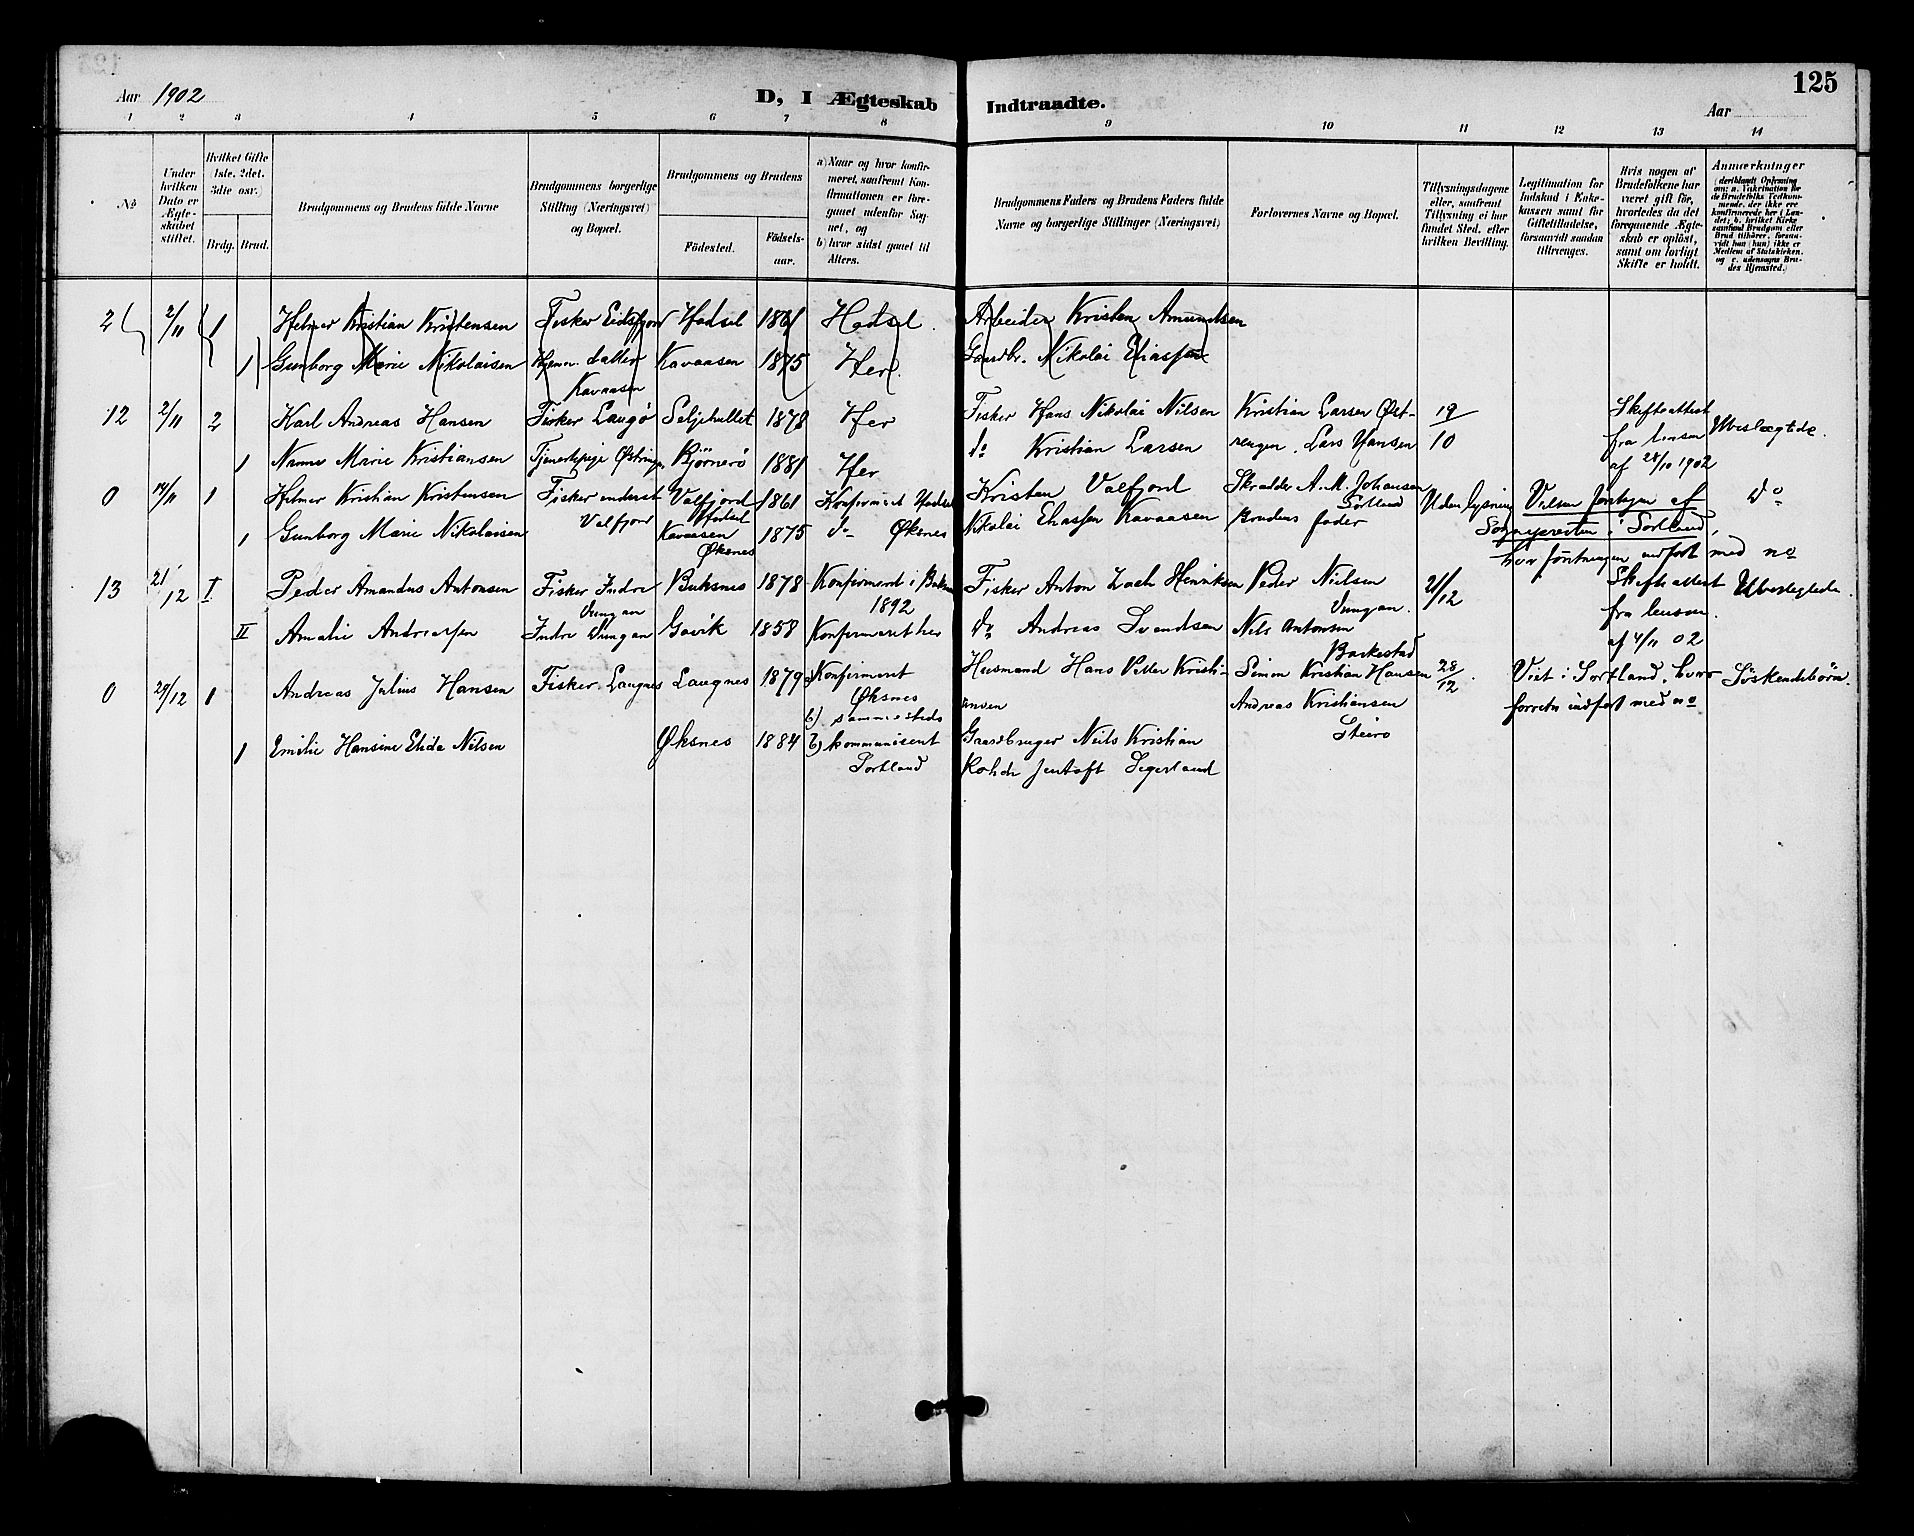 125
Aar 1902
D, I Ægteskab Indtraadte.
Aar
1 2 3 4 5 6 7 8 9 10 11 12 13 14
No
Under hvilken Dato er Ægteskabet stiftet.
Hvilket Gifte (1ste, 2det, 3dte osv.)
Brdg. Brud.
Brudgommens og Brudens fulde Navne
Brudgommens borgerlige Stilling (Næringsvei) og Bopæl.
Brudgommens og Brudens
Fødested. Fødselsaar.
a) Naar og hvor konfirmeret, saafremt Konfirmationen er foregaaet udenfor Sognet, og
b) hvor sidst gaaet til Alters.
Brudgommens Faders og Brudens Faders fulde Navne og borgerlige Stillinger (Næringsvei)
Forlovernes Navne og Bopæl.
Tillysningsdagene eller, saafremt Tillysning ei har fundet Sted, efter hvilken Bevilling.
Legitimation for Indskud i Enkekassen samt for Giftetilladelse, forsaavidt saadan tiltrænges.
Hvis nogen af Brudefolkene har været gift før, hvorledes da det foregaaende Ægteskab er opløst, samt om lovligt Skifte er holdt.
Anmærkninger
2 2/11 1 Helmer Kristian Kristensen Fisker Eidsfjord Hadsel 1861 Hadsel. Arbeider Kristen Amundsen
1 Gunborg Marie Nikolaisen Hjem. datter Kavaasen Kavaasen 1875 Her. Gaardbr. Nikolai Eliassen
12 2/11 2 Karl Andreas Hansen Fisker Langø 1878 Her Fisker Hans Nikolai Nilsen Kristian Larsen Øst- 19/10 Skifteattest Ubeslægtede.
1 Marie Kristiansen Bjørnerø 1881 Her do Kristian Larsen rengen. Lars Hansen fra af 28/10 1902
0 14/11 1 Helmer Kristian Kristensen Fisker inderst Valfjord Valfjord Hadsel 1861 Konfirmeret Hadsel Kristen Valfjord Skrædder A. M. Johansen Sortland Uden lysning af do
1 Gunborg Marie Nikolaisen Kavaasen Øksnes 1875 do Øksnes Nikolai Eliassen Kavaasen Brudens fader Sognepresten i Sortland, hvor indført med no
13 21/12 I Peder Amandus Antonsen Fisker Indre Buksnes 1878 Konfirmeret i 1892 Fisker Anton Zach Henriksen Peder Nielsen 21/12 Skifteattest Ubeslegtede.
II Amalie Andreassen Indre Gavik 1858 Konfirmeret her do Andreas Svendsen Nils Antonsen Barkestad fra af 4/11 02
0 29/12 1 Andreas Julius Hansen Fisker Langnes Langnes 1879 Konfirmert Øksnes b) sammesteds Husmand Hans Peder Kristiansen Simon Kristian Hansen 28/12. Viet i Sortland, hvor Søskendebørn.
Andreas Kristiansen Steiro indført med no
1 Emilie Hansine Elida Nilsen Øksnes 1884 b) kommunisert Sortland Gaardbruger Neils Kristian Jentoft